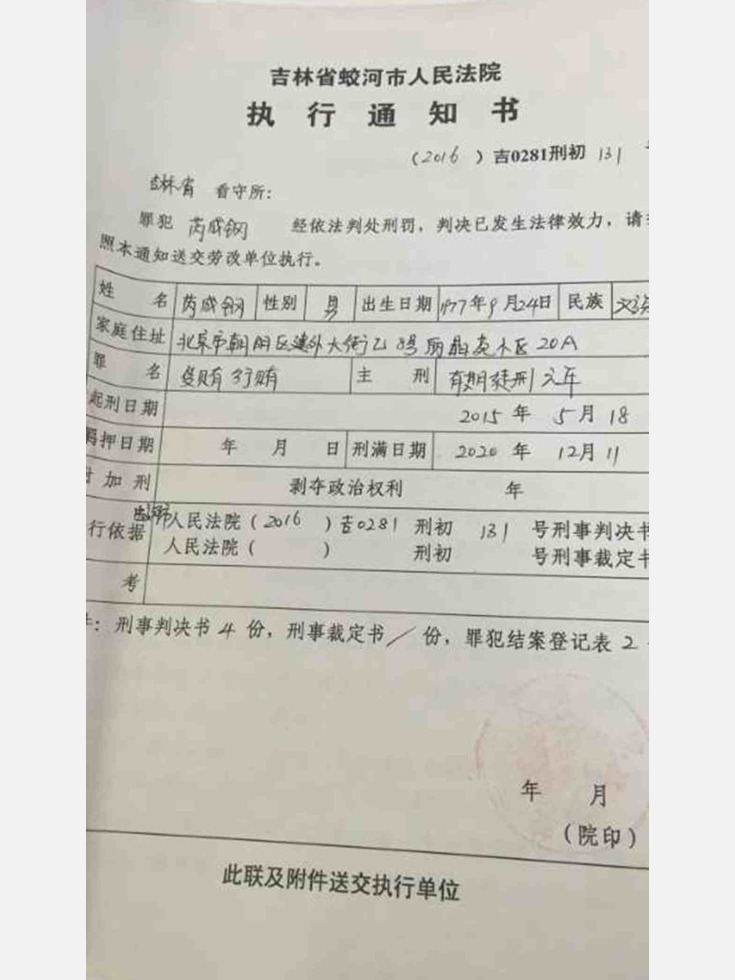 吉林省蛟河市人民法院
执行通知书
(2016)吉0281刑初131
吉林省看守所:
罪犯 芮成钢 经依法判处刑罚，判决已发生法律效力，请
照本通知送交劳改单位执行。
姓名 芮成钢 性别 男 出生日期 1977年9月24日 民族
家庭住址 北京市朝阳区建外大街乙8号丽晶苑小区20A
罪名 受贿 行贿 主刑 有期徒刑六年
起刑日期 2015年5月18
羁押日期 年 月 日 刑满日期 2020年12月11
附加刑 剥夺政治权利 年
行依据 人民法院(2016)吉0281刑初131号刑事判决书
人民法院( ) 刑初 号刑事裁定书
考
:刑事判决书4份，刑事裁定书/份，罪犯结案登记表2
年 月
(院印)
此联及附件送交执行单位